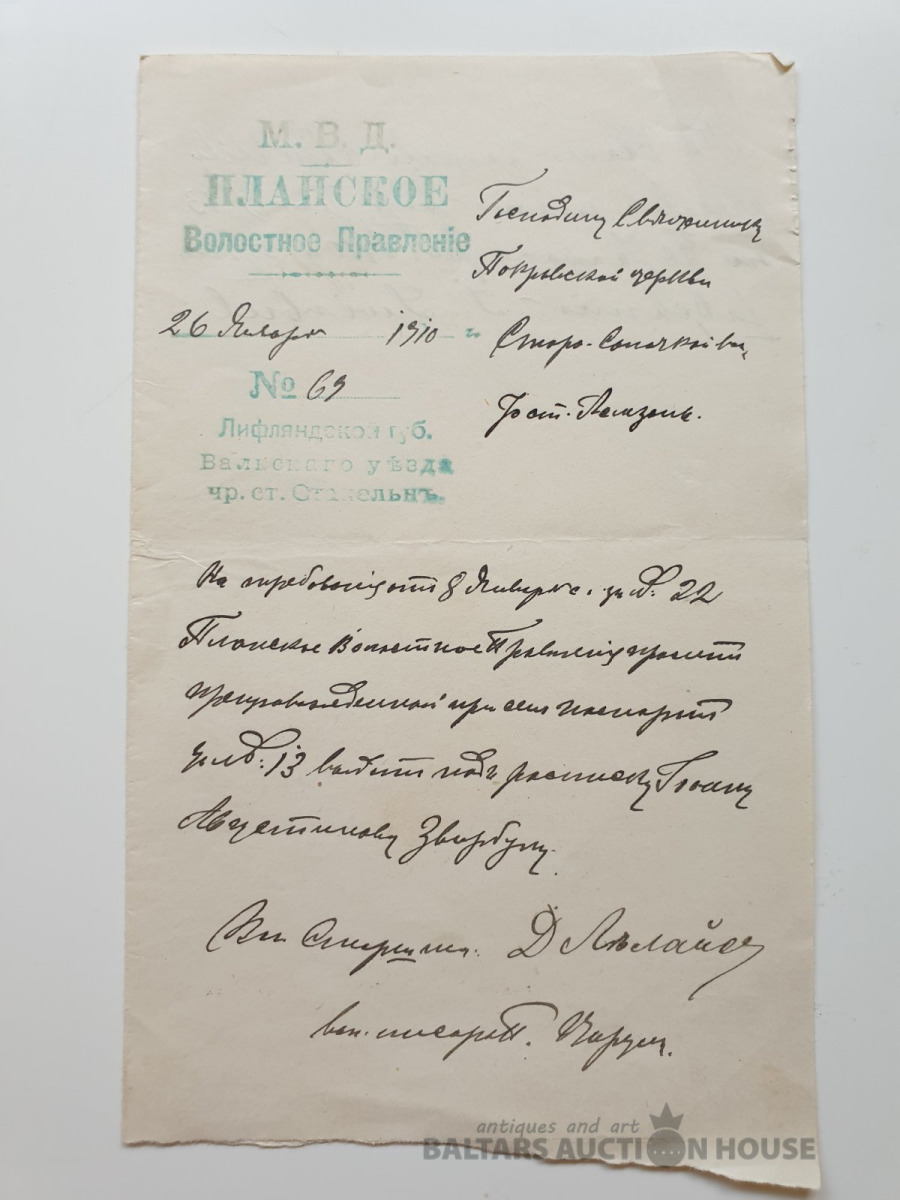 М. В. Д.
ПЛАНСКОЕ
Волостное Правленіе
26 Января 1910 г.
№ 69
Лифляндской губ.
Валкскаго уѣзда
чр. ст. Стакельнъ.
Господину Священнику
Покровской церкви
Старо-
На 8 Января с. за №. 22
Планское Волостное Правленіе проситъ
препровождённый при семъ паспортъ
за №. 13 выдать подъ росписку
Августинову Звирбулу.
Вол. Старшина. Д
вол. писарь П.
antiques and art
BALTARS AUCTION HOUSE